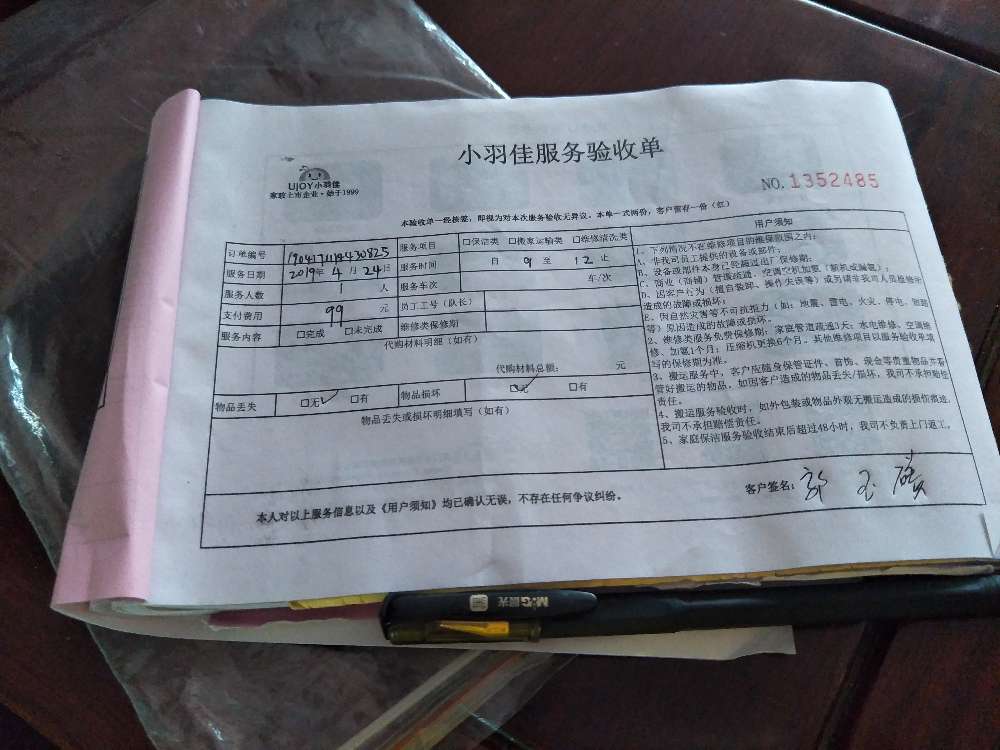 小羽佳服务验收单
UJOY小羽佳
家政上市企业·始于1999
NO. 1352485
本验收单一经接签，即视为对本次服务验收无异议。本单一式两份，客户留存一份（红）
订单编号 服务项目 □保洁类 □搬家运输类 □维修清洗类
服务日期 2019年 4 月 24日 服务时间 自 9 至 12 止
服务人数 1 人 服务车次 车/次
支付费用 99 元 员工工号（队长）
服务内容 □完成 □未完成 维修类保修期
代购材料明细（如有）
代购材料总额： 元
物品丢失 □无✓ □有 物品损坏 □无✓ □有
物品丢失或损坏明细填写（如有）
用户须知
1、下列情况不在维修项目的维保范围之内：
A、非我司员工提供的设备或部件；
B、设备或部件本身已经超过出厂保修期；
C、商业（商铺）管道疏通、空调空机加氟（新机或漏氟）；
D、因客户行为（擅自装卸、操作失误等）或另请非我司人员维修所
造成的故障或损坏；
E、因自然灾害等不可抗拒力（如：地震、雷电、火灾、停电、短路
等）原因造成的故障或损坏。
2、维修类服务免费保修期：家庭管道疏通3天；水电维修、空调维
修、加氟1个月；压缩机更换6个月。其他维修项目以服务验收单填
写的保修期为准。
3、搬运服务中，客户应随身保管证件、首饰、现金等贵重物品并看
管好搬运的物品，如因客户造成的物品丢失/损坏，我司不承担赔偿
责任。
4、搬运服务验收时，如外包装或物品外观无搬运造成的损伤痕迹，
我司不承担赔偿责任。
5、家庭保洁服务验收结束后超过48小时，我司不负责上门返工。
本人对以上服务信息以及《用户须知》均已确认无误，不存在任何争议纠纷。
客户签名：郭玉
M&G晨光